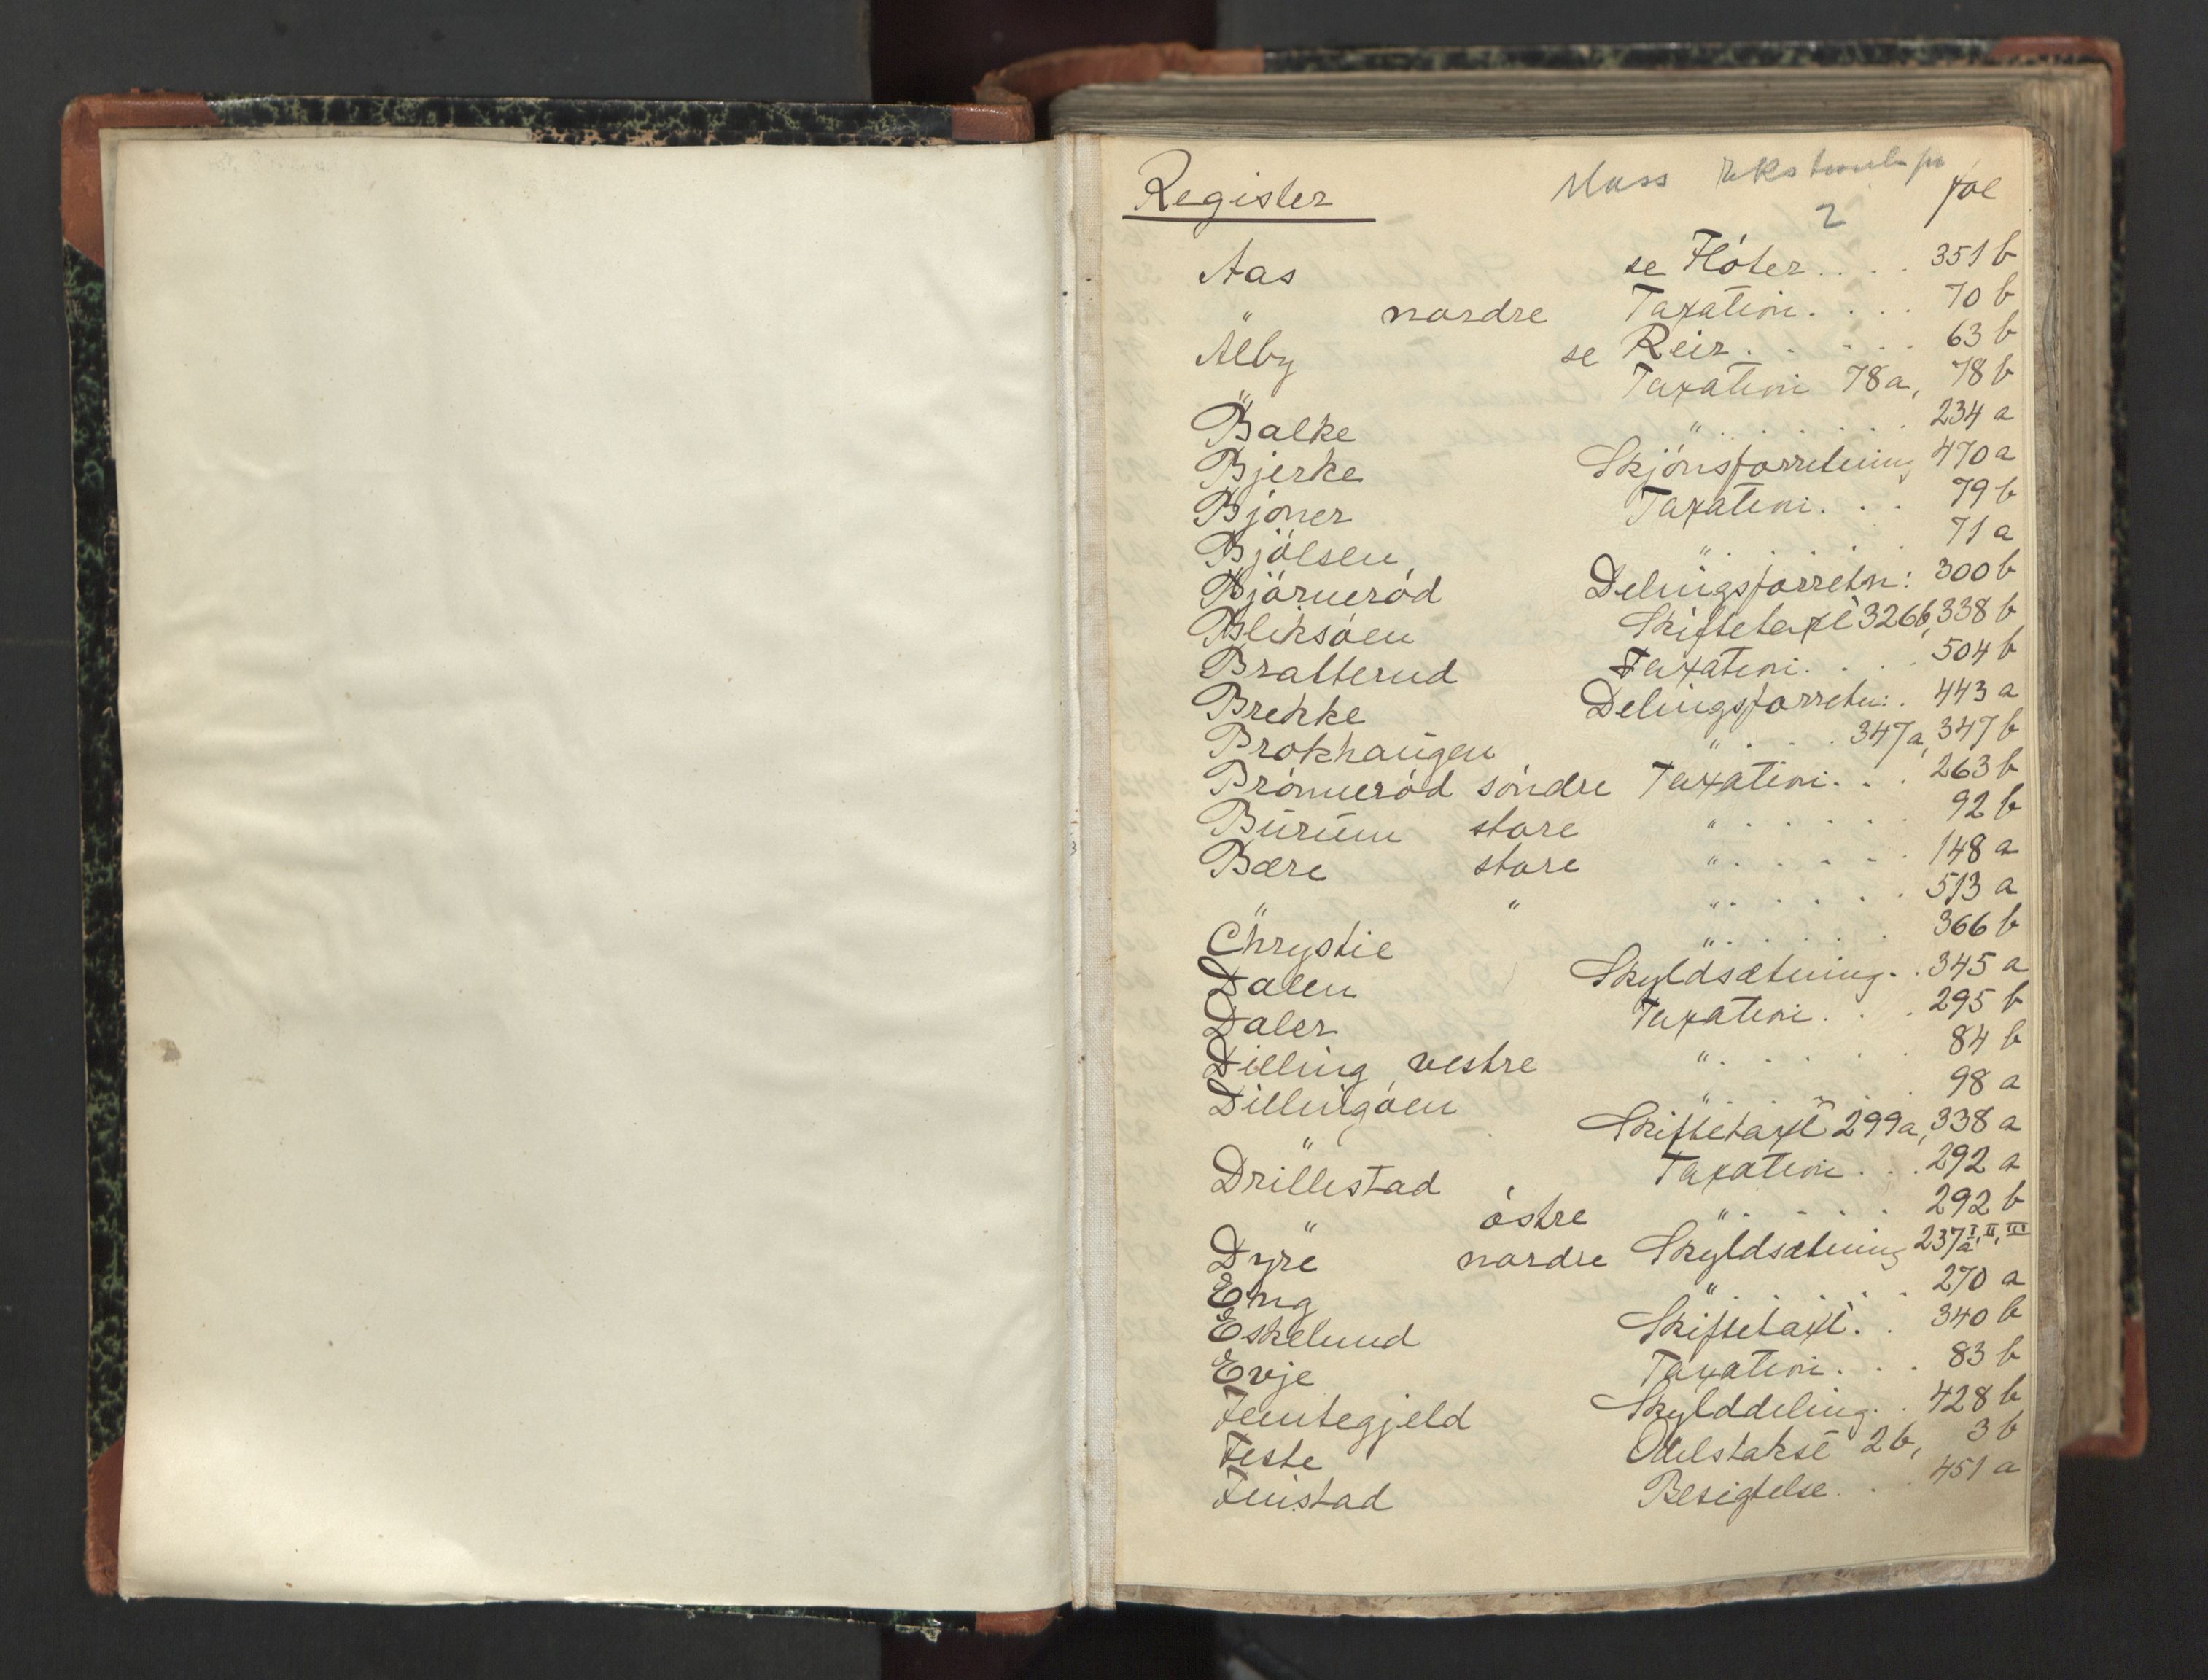 Register Moss 2 fol
Aas se Flóter.... 351 b
" nordre Taxation.... 70 b
Alby se Reir...... 63 b
" Taxation 78a, 78 b
Balke "...... 234 a
Bjerke Skjónsforretning 470 a
Bjóner Taxation... 79 b
Bjólsen "..... 71 a
Bjórneród Delingsforretn: 300 b
Bliksóen Skiftetaxt 326b, 338 b
Bratterud Taxation.... 504 b
Brekke Delingsforretn:. 443 a
Brokhaugen ".... 347a, 347 b
Brónneród sóndre Taxation... 263 b
Burum store "...... 92 b
Bære store "...... 148 a
" " "...... 513 a
Chrystie "..... 366 b
Dalen Skyldsætning.. 345 a
Daler Taxation... 295 b
Dilling vestre "..... 84 b
Dillingóen "..... 98 a
" Skiftetaxt 299a, 338 a
Drillestad Taxation... 292 a
" óstre "..... 292 b
Dyre nordre Skyldsætning 237a I, II, III
Eng "..... 270 a
Eskelund Skiftetaxt.. 340 b
Evje Taxation... 83 b
Femtegjeld Skylddeling.. 428 b
Feste Odelstakst 2b, 3 b
Finstad Besigtelse... 451 a